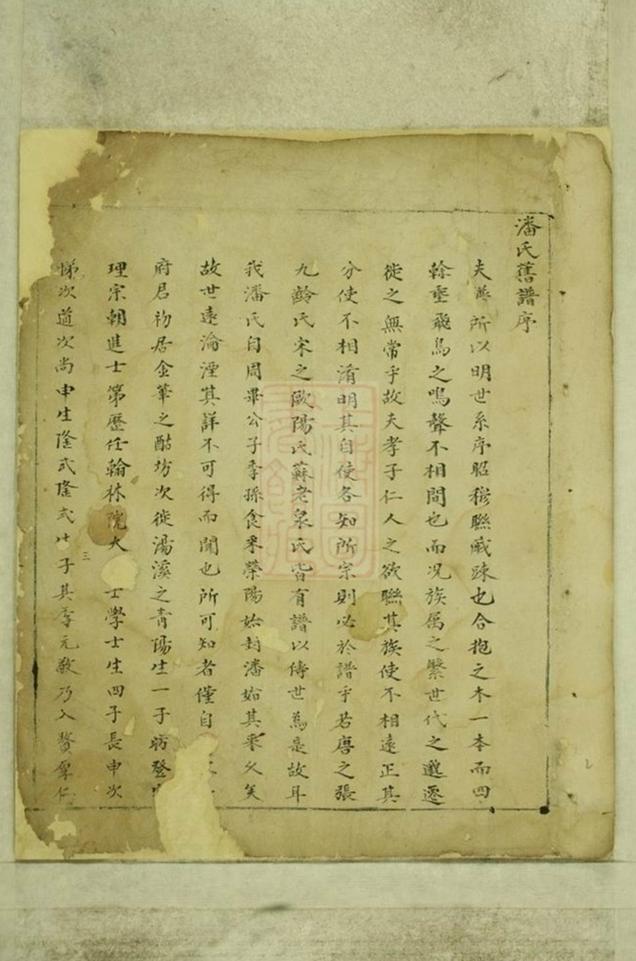 潘氏舊譜序
夫譜所以明世系序昭穆聯戚疎也合抱之木一本而四
幹臺飛鳥之鳴聲不相間也而况族属之繫世代之遷
徙之無常乎故夫孝子仁人之欲聯其族使不相遠正其
分使不相淆明其自使各知所宗則必於譜乎若唐之張
九齡氏宋之歐陽氏蘇老泉氏皆有譜以傳世焉是故耳
我潘氏自周畢公子季孫食采滎陽始封潘始其來久矣
故世遠淪湮其詳不可得而聞也所可知者僅自
府君初居金華之酤坊次徙湯溪之青陽生一子昉登
理宗朝進士第歷任翰林院大士學士生四子長申次
悌次道次尚申生隆式隆式生三子其季元敬乃入贅